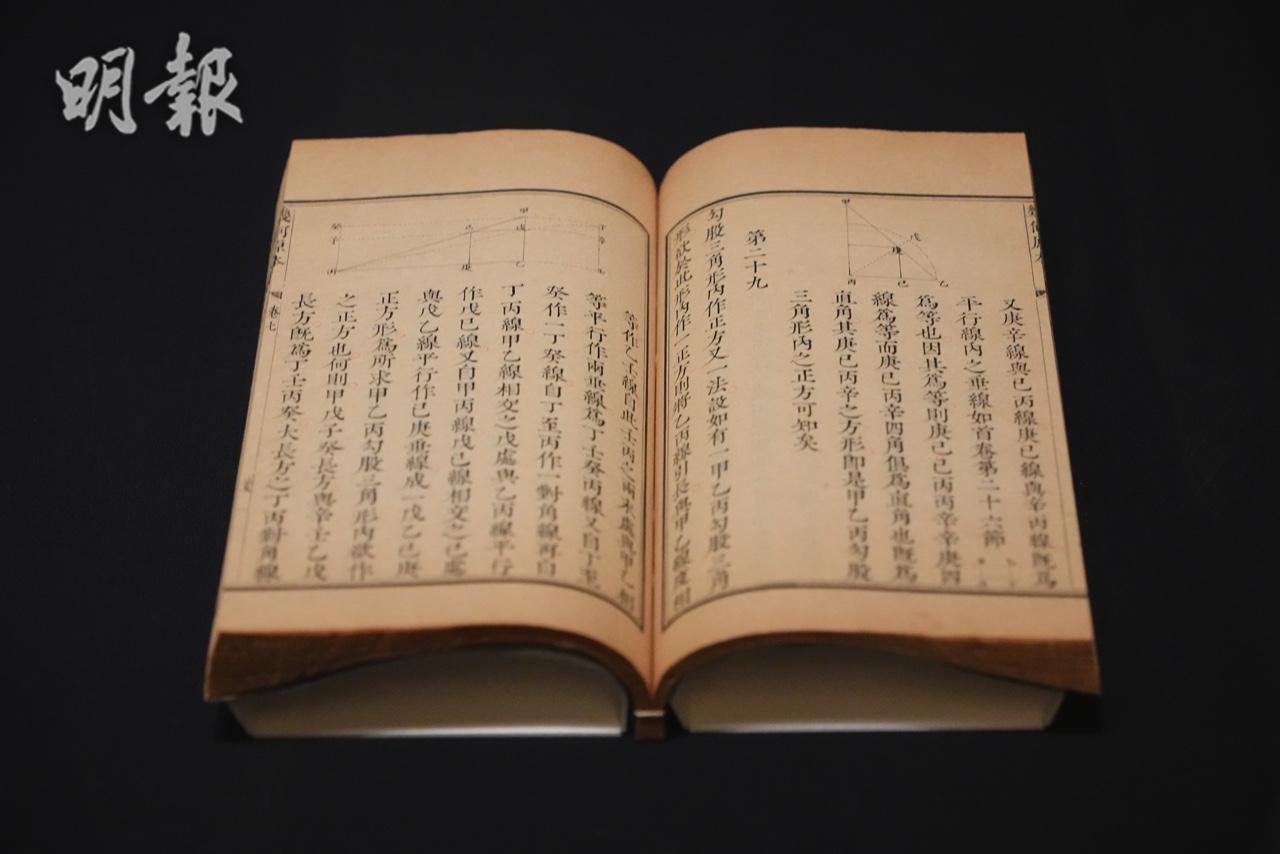 明報
又庚辛線與己丙線庚己線與辛丙線旣爲
平行線內之垂線如首卷第二十六節
爲等也因其爲等則庚己己丙丙辛辛庚四
線爲等而庚己丙辛四角俱爲直角也旣爲
直角其庚己丙辛之方形卽是甲乙丙勾股
三角形內之正方可知矣
甲
戊
庚
丙
己
乙
第二十九
勾股三角形內作正方又一法設如有一甲乙丙勾股三角
形欲於此形內作一正方則將乙丙線引長與甲乙線度相
等作乙壬線自此壬丙之兩末處與甲乙相
等平行作兩垂線爲丁壬癸丙線又自丁至
癸作一丁癸線自丁至丙作一對角線再自
丁丙線甲乙線相交之戊處與乙丙線平行
作戊己線又自甲丙線戊己線相交之己處
與戊乙線平行作己庚垂線成一戊乙己庚
正方形爲所求甲乙丙勾股三角形內欲作
之正方也何則甲戊子癸長方與辛壬乙戊
長方旣爲丁壬丙癸大長方之丁丙對角線
丁
甲
戊
乙
己
庚
癸
子
丙
幾何原本
卷七